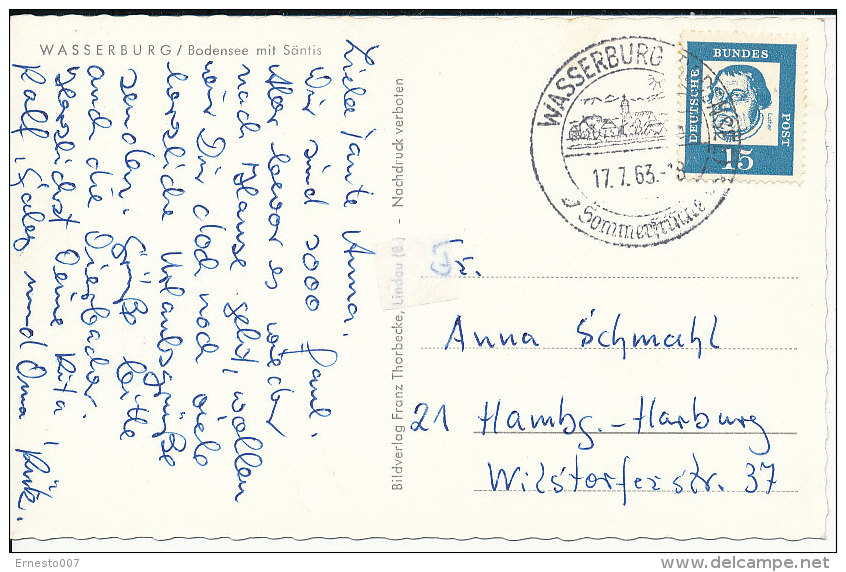 WASSERBURG / Bodensee mit Säntis
Liebe Tante Anna,
Wir sind sooo faul.
Aber bevor es wieder
nach Hause geht, wollen
wir Dir doch noch viele
herzliche Urlaubsgrüße
senden. Grüße bitte
auch die
Herzlichst Deine Rita,
Ralf, und Oma
Bildverlag Franz Thorbecke, Lindau (B) - Nachdruck verboten
WASSERBURG
17.7.63.-18
Sommerfrische
DEUTSCHE
BUNDES
POST
Luther
15
Fr.
Anna Schmahl
21 Hambg.-Harburg
Wilstorferstr. 37
Ernesto007
delcampe.net